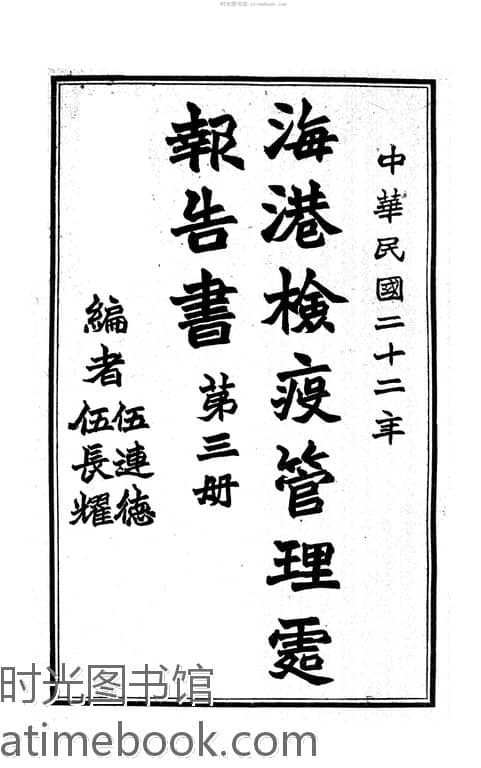 时光图书馆 www.atimebook.com
中華民國二十二年
海港檢疫管理處
報告書 第三册
編者 伍連德
伍長耀
时光图书馆
atimebook.com